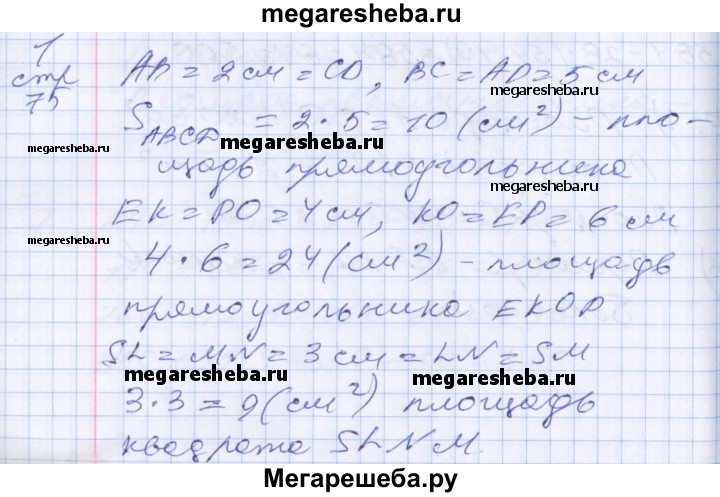 megaresheba.ru
1
стр
75
AB = 2 см = CD, BC = AD = 5 см
S ABCD = 2 · 5 = 10 (см²) - пло-
megaresheba.ru
щадь прямоугольника
megaresheba.ru
megaresheba.ru
EK = PO = 4 см, KO = EP = 6 см
megaresheba.ru
4 · 6 = 24 (см²) - площадь
прямоугольника EKOP
SL = MN = 3 см = LN = SM
megaresheba.ru
megaresheba.ru
3 · 3 = 9 (см²) площадь
квадрата SLNM.
Мегарешеба.ру